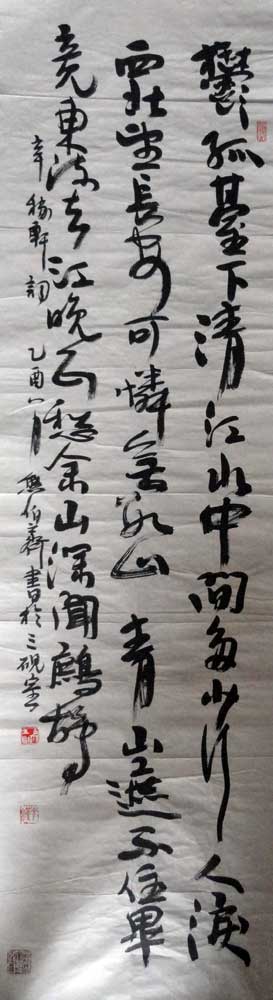 鬱孤臺下清江水中間多少行人淚
西北望長安可憐無數山青山遮不住畢
竟東流去江晚正愁余山深聞鷓鴣
辛稼軒詞乙酉八月熊伯齊書於三硯室